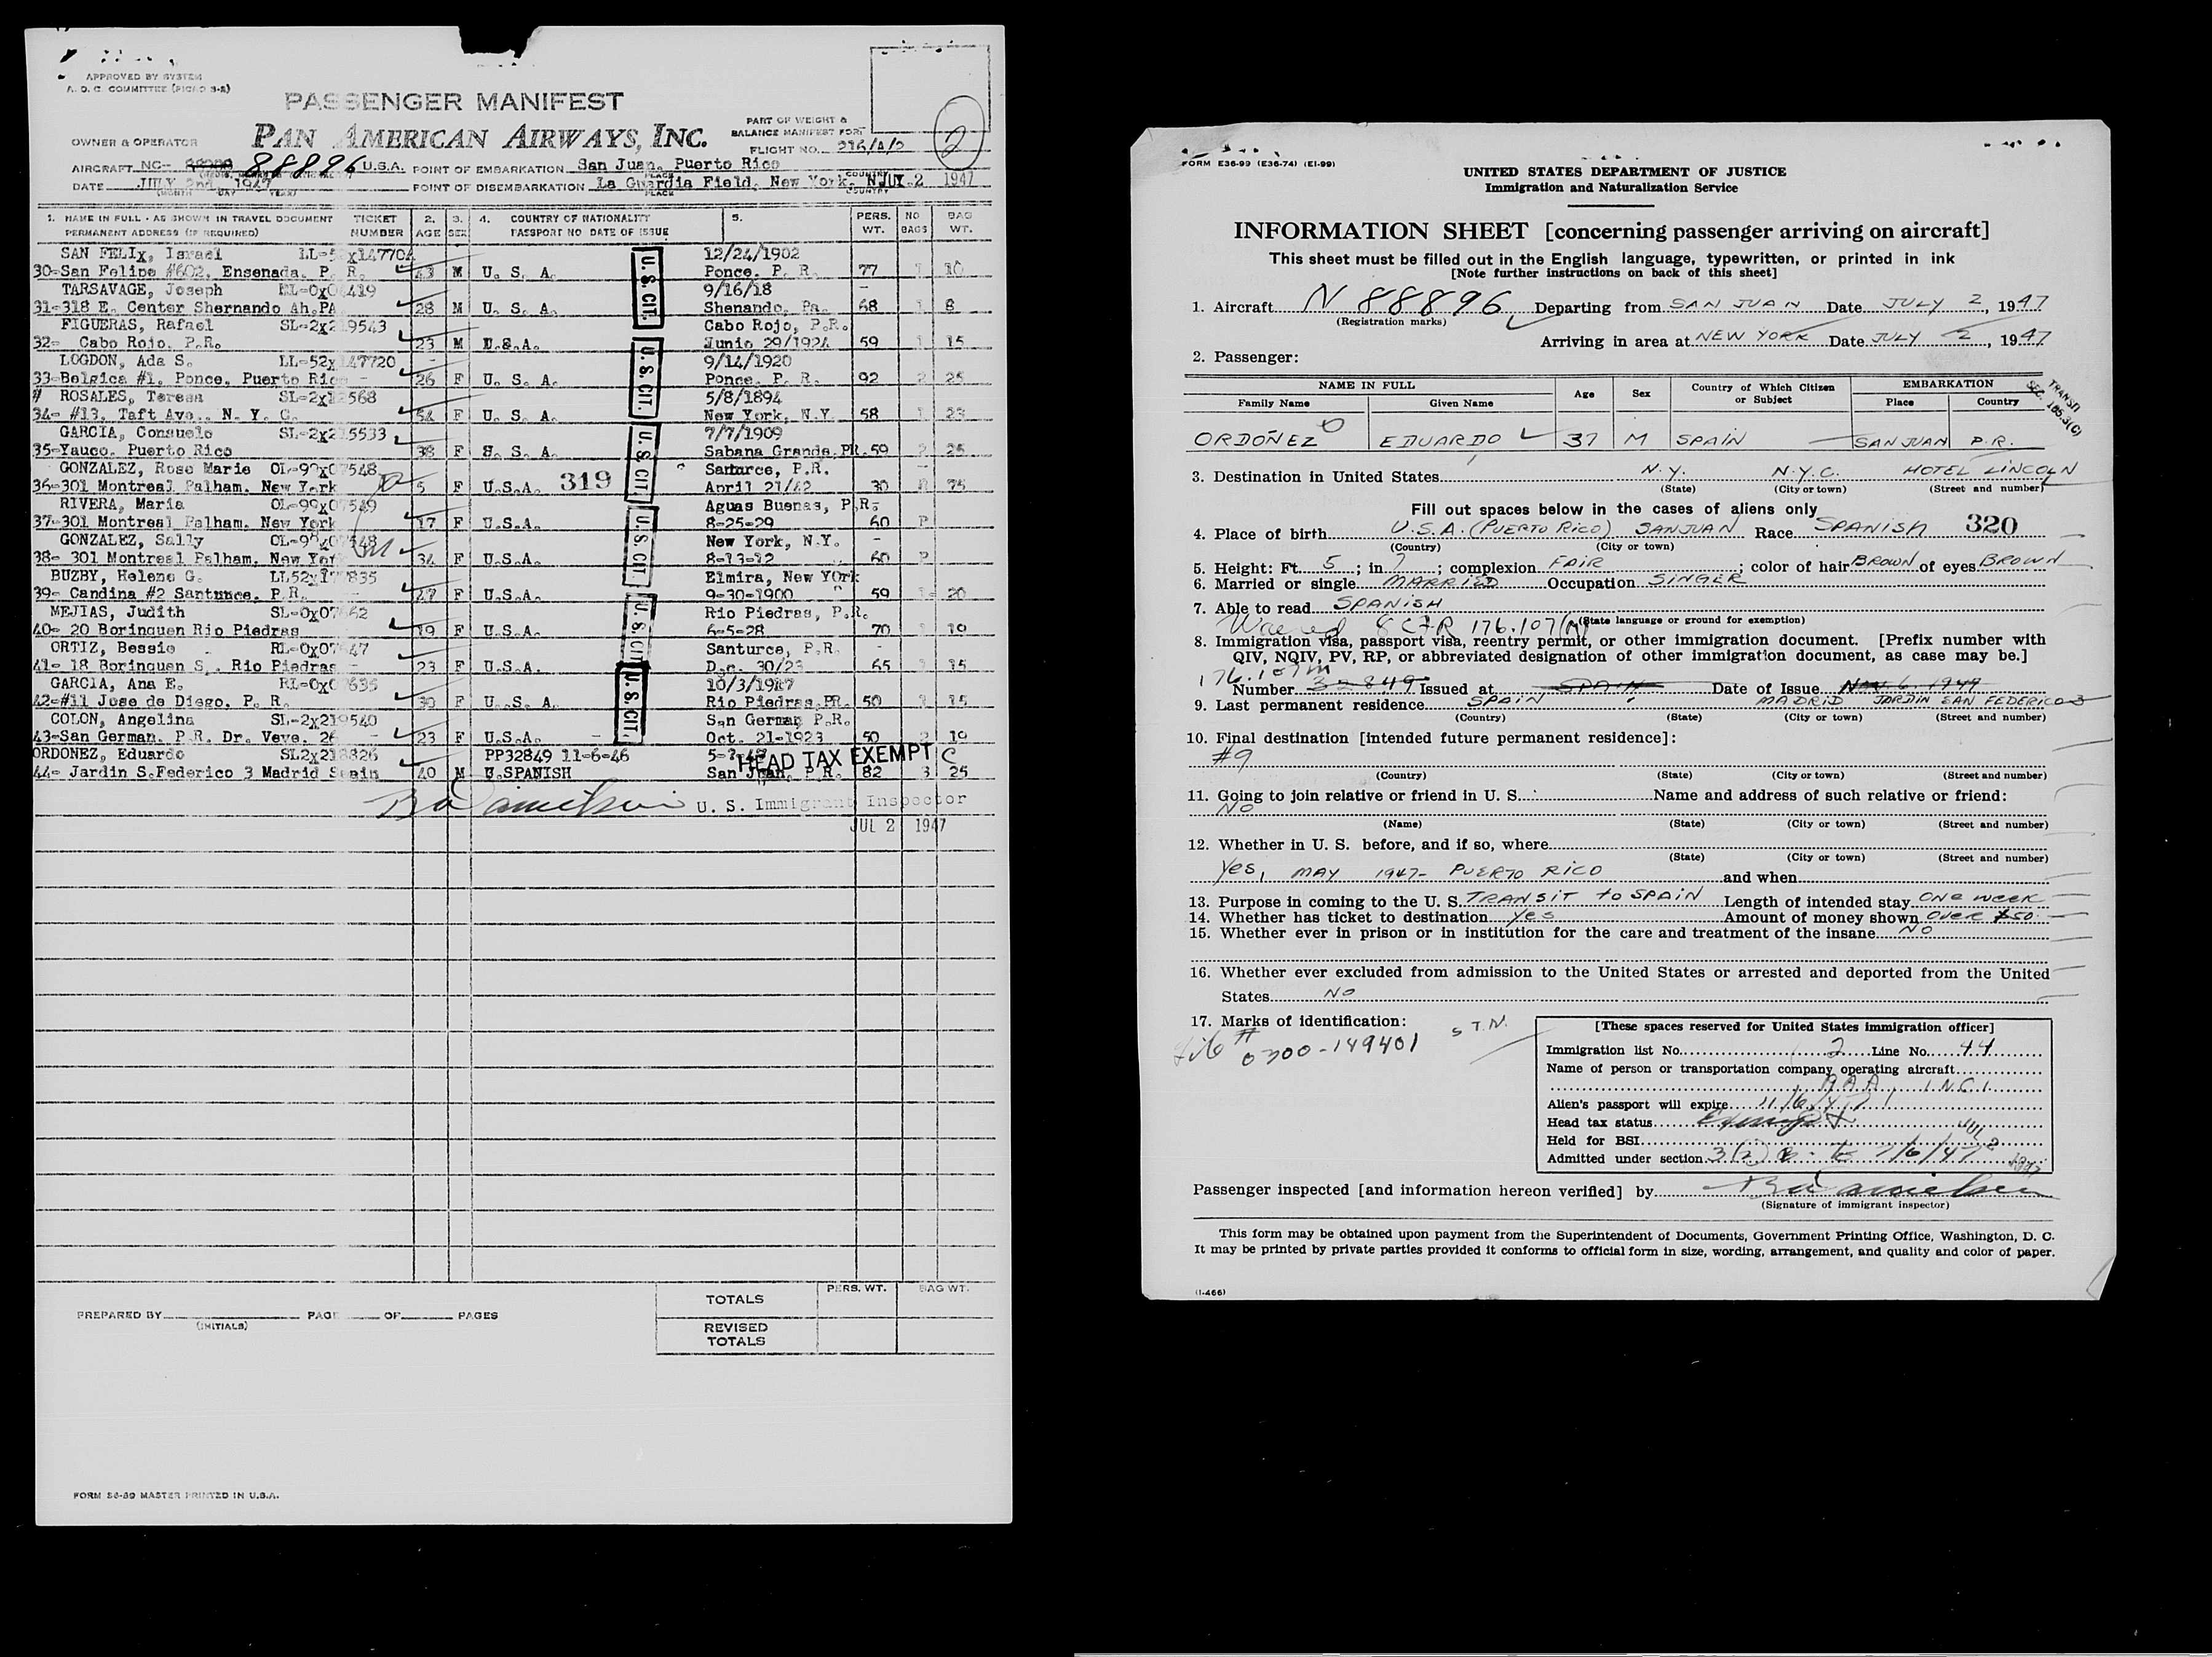 APPROVED BY SYSTEM
A. O. C. COMMITTEE
PASSENGER MANIFEST
OWNER & OPERATOR PAN AMERICAN AIRWAYS, INC.
PART OF WEIGHT & BALANCE MANIFEST FOR:
FLIGHT NO. 216/A/2
2
AIRCRAFT NC- 88896 U.S.A. POINT OF EMBARKATION San Juan, Puerto Rico
DATE JULY 2nd, 1947 POINT OF DISEMBARKATION La Guardia Field, New York, N JUL 2 1947
1. NAME IN FULL - AS SHOWN IN TRAVEL DOCUMENT TICKET 2. 3. 4. COUNTRY OF NATIONALITY 5. PERS. NO BAG
PERMANENT ADDRESS (IF REQUIRED) NUMBER AGE SEX PASSPORT NO DATE OF ISSUE WT. BAGS WT.
SAN FELIX, Israel 12/24/1902
30-San Felipe #602, Ensenada, P. R. 43 M U. S. A. Ponce, P. R. 77 1 10
TARSAVAGE, Joseph 9/16/18
31-318 E. Center Shernando Ah,PA 28 M U. S. A. Shenando, Pa. 68 1 8
FIGUERAS, Rafael SL-2x219543 Cabo Rojo, P.R.
32- Cabo Rojo, P.R. 23 M U.S.A. Junio 29/1924 59 1 15
LOGDON, Ada S. LL-52x147720 9/14/1920
33-Belgica #1, Ponce, Puerto Rico 26 F U. S. A. Ponce, P. R. 92 2 25
# ROSALES, Teresa 5/8/1894
34- #13, Taft Ave., N. Y. C. 54 F U. S. A. New York, N.Y. 58 1 23
GARCIA, Consuelo SL-2x215533 7/7/1909
35-Yauco, Puerto Rico 38 F S. S. A. Sabana Grande,PR. 59 2 25
GONZALEZ, Rose Marie OL-99x07548 Santurce, P.R.
36-301 Montreal Palham, New York 5 F U.S.A. 319 April 21/42 30 75
RIVERA, Maria OL-99x07549 Aguas Buenas, P.R.
37-301 Montreal Palham, New York 17 F U.S.A. 8-25-29 60 P
GONZALEZ, Sally OL-99x07548 New York, N.Y.
38- 301 Montreal Palham, New York 34 F U.S.A. 8-13-12 60 P
BUZBY, Helene G. Elmira, New YOrk
39- Candina #2 Santunce, P.R. 47 F U.S.A. 9-30-1900 59 1 20
MEJIAS, Judith Rio Piedras, P.R.
40- 20 Borinquen Rio Piedras 19 F U.S.A. 6-5-28 70 1 19
ORTIZ, Bessie Santurce, P.R.
41- 18 Borinquen S,. Rio Piedras 23 F U.S.A. Dec. 30/23 65 15
GARCIA, Ana E. 10/3/1917
42-#11 Jose de Diego, P. R. 30 F U. S. A. Rio Piedras,PR. 50 15
COLON, Angelina SL-2x219540 San German P.R.
43-San German, P.R. Dr. Veve, 26 23 F U.S.A. Oct. 21-1923 50 2 19
ORDONEZ, Eduardo SL2x218826 PP32849 11-6-46
44- Jardin S.Federico 3 Madrid Spain 40 M U.SPANISH San Juan, P.R. 82 3 25
U.S. CIT.
U.S. CIT.
U.S. CIT.
U.S. CIT.
U.S. CIT.
U.S. CIT.
HEAD TAX EXEMPT C
U. S. Immigrant Inspector
JUL 2 1947
PERS. WT. BAG WT.
TOTALS
PREPARED BY PAGE OF PAGES
(INITIALS)
REVISED TOTALS
FORM 36-69 MASTER PRINTED IN U.S.A.
FORM E36-99 (E36-74) (E1-99)
UNITED STATES DEPARTMENT OF JUSTICE
Immigration and Naturalization Service
INFORMATION SHEET [concerning passenger arriving on aircraft]
This sheet must be filled out in the English language, typewritten, or printed in ink
[Note further instructions on back of this sheet]
1. Aircraft N 88896 Departing from SAN JUAN Date JULY 2, 1947
(Registration marks)
Arriving in area at NEW YORK Date JULY 2, 1947
2. Passenger:
NAME IN FULL Age Sex Country of Which Citizen or Subject EMBARKATION
Family Name Given Name Place Country
TRANSIT
SEC. 165.3(C)
ORDOÑEZ EDUARDO 37 M SPAIN SAN JUAN P.R.
3. Destination in United States N.Y. N.Y.C. HOTEL LINCOLN
(State) (City or town) (Street and number)
Fill out spaces below in the cases of aliens only
4. Place of birth U.S.A. (PUERTO RICO) SAN JUAN Race SPANISH 320
(Country) (City or town)
5. Height: Ft. 5; in 7; complexion FAIR; color of hair BROWN of eyes BROWN
6. Married or single MARRIED Occupation SINGER
7. Able to read SPANISH
(State language or ground for exemption)
Waived 8 CFR 176.107(m)
8. Immigration visa, passport visa, reentry permit, or other immigration document. [Prefix number with
QIV, NQIV, PV, RP, or abbreviated designation of other immigration document, as case may be.]
176.107m
Number 32849 Issued at SPAIN Date of Issue Nov 6 1947
9. Last permanent residence SPAIN MADRID JARDIN SAN FEDERICO 3
(Country) (State) (City or town) (Street and number)
10. Final destination [intended future permanent residence]:
#9
(Country) (State) (City or town) (Street and number)
11. Going to join relative or friend in U. S. Name and address of such relative or friend:
NO
(Name) (State) (City or town) (Street and number)
12. Whether in U. S. before, and if so, where
(State) (City or town) (Street and number)
Yes, MAY 1947- PUERTO RICO and when
13. Purpose in coming to the U. S. TRANSIT to SPAIN Length of intended stay ONE WEEK
14. Whether has ticket to destination Yes Amount of money shown OVER $50
15. Whether ever in prison or in institution for the care and treatment of the insane NO
16. Whether ever excluded from admission to the United States or arrested and deported from the United
States NO
17. Marks of identification:
0300-149401
[These spaces reserved for United States immigration officer]
Immigration list No. 2 Line No. 44
Name of person or transportation company operating aircraft
P.A.A., INC.
Alien's passport will expire 11/6/47
Head tax status Exempt
Held for BSI
Admitted under section 3(2) 7/6/47
JUL 2 1947
Passenger inspected [and information hereon verified] by
(Signature of immigrant inspector)
This form may be obtained upon payment from the Superintendent of Documents, Government Printing Office, Washington, D. C.
It may be printed by private parties provided it conforms to official form in size, wording, arrangement, and quality and color of paper.
(I-466)